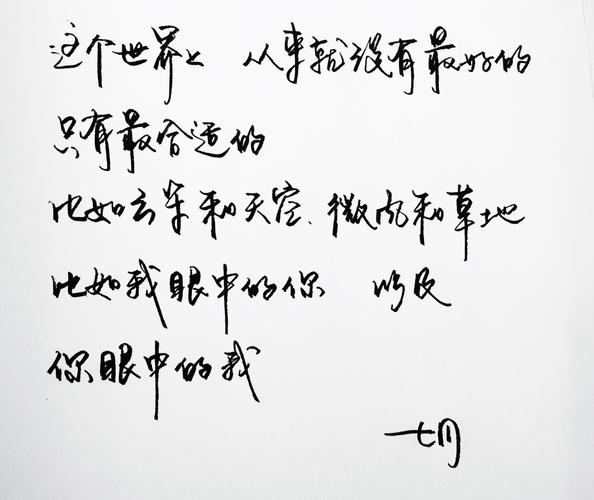 这个世界上 从来就没有最好的
只有最合适的
比如云朵和天空、微风和草地
比如我眼中的你 以及
你眼中的我
七月